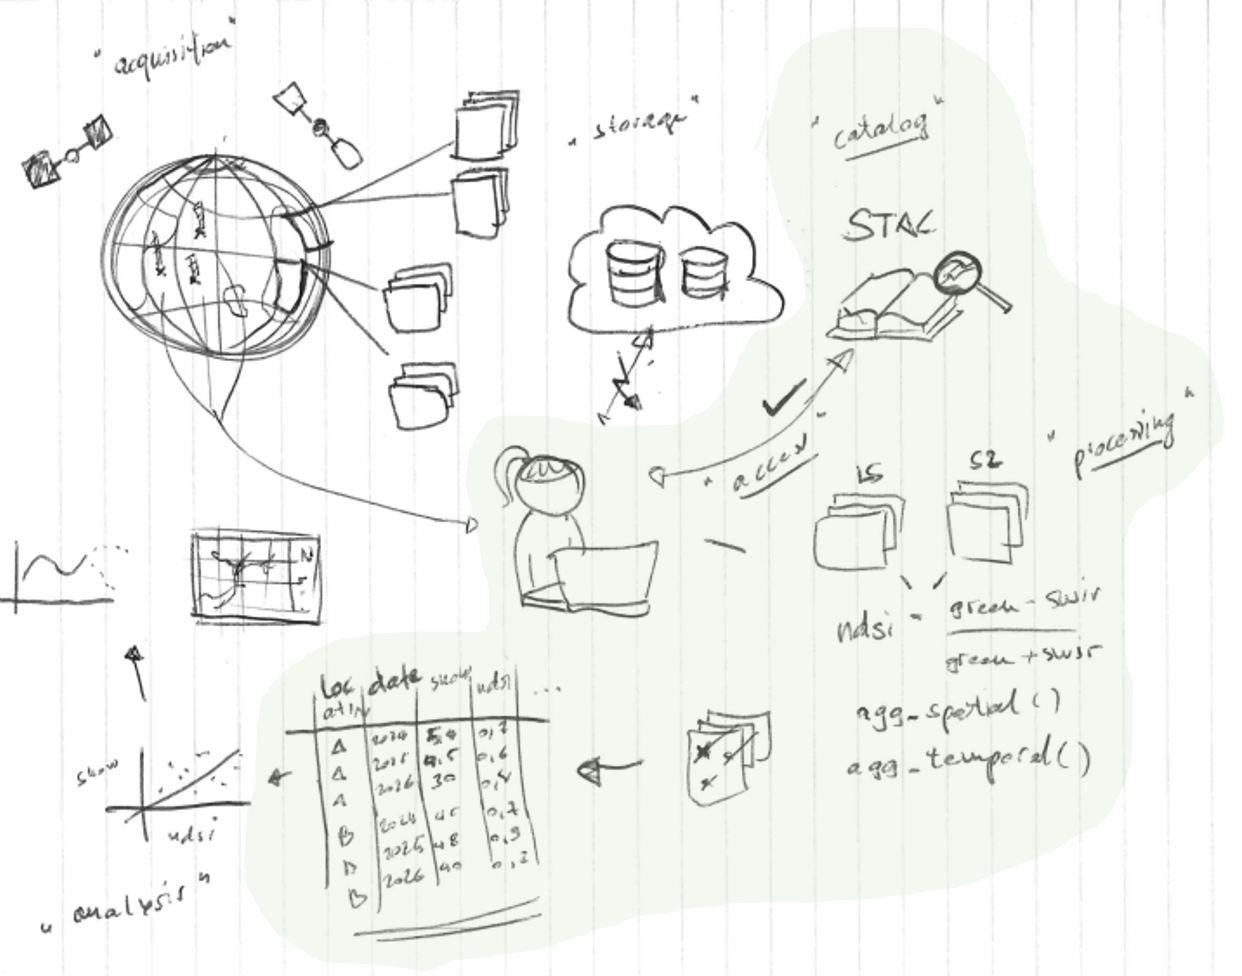 "acquisition"
"storage"
"catalog"
STAC
"access"
"processing"
LS
S2
ndsi = green - swir
green + swir
agg_spatial()
agg_temporal()
Loc date snow ndsi ...
ation
A 2024 0,7
A 2025 0,6
A 2026 30
B 2024 45 0,7
B 2025 48 0,9
B 2026 40 0,2
snow
ndsi
"analysis"
N